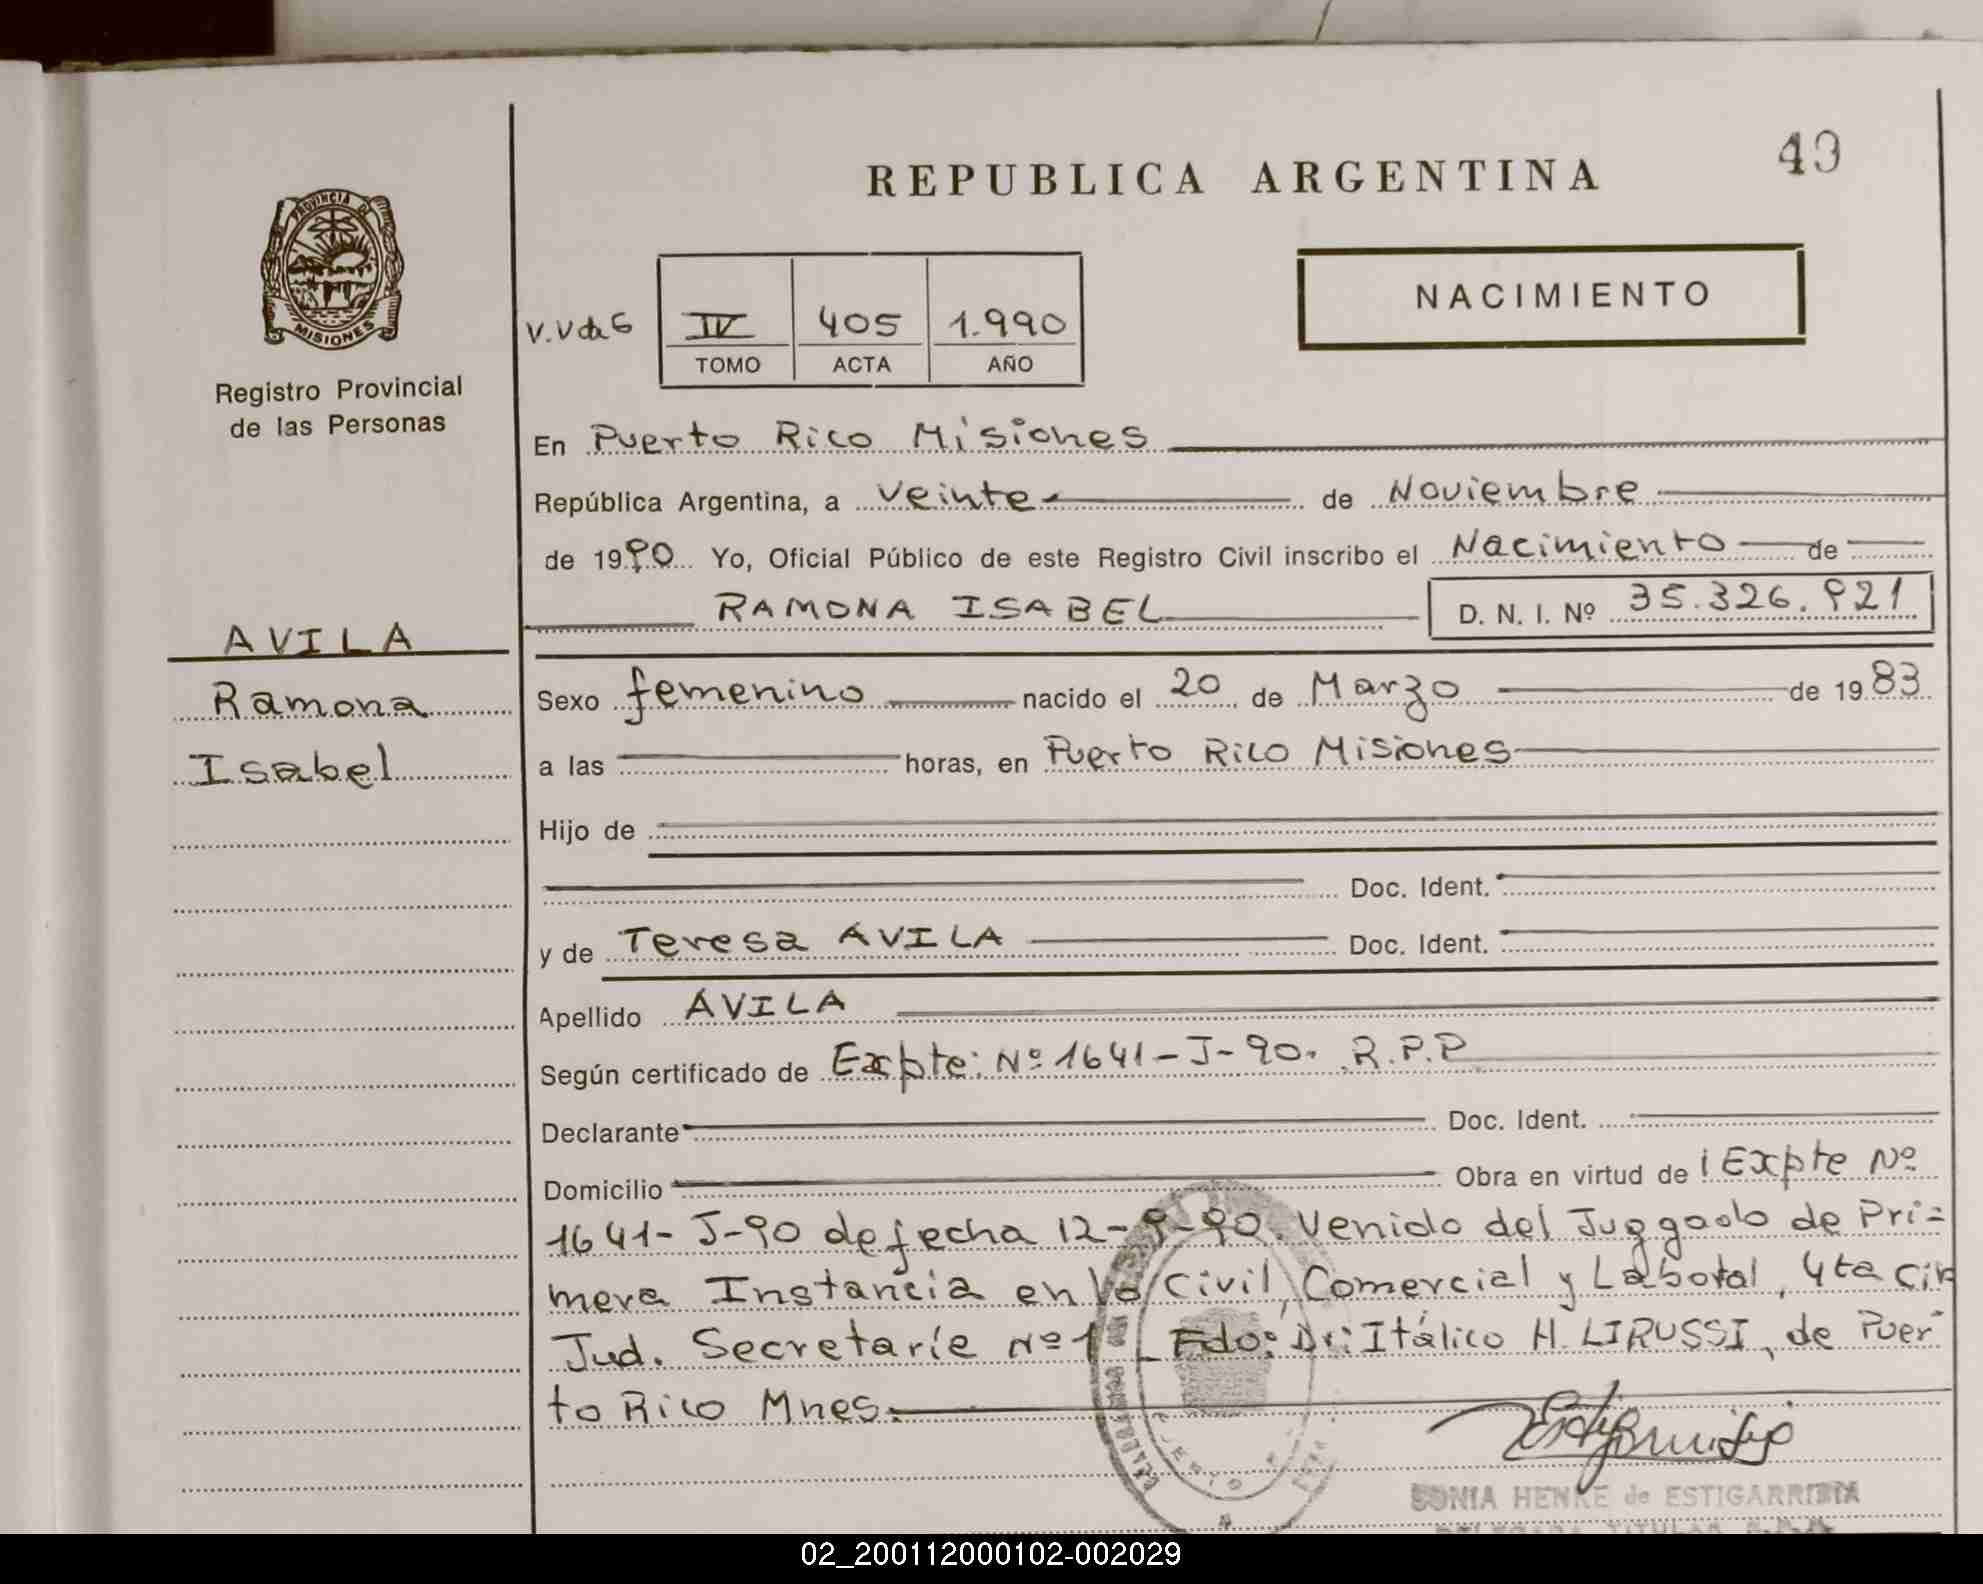 REPUBLICA ARGENTINA
49
PROVINCIA DE
MISIONES
Registro Provincial
de las Personas
NACIMIENTO
V.V de G
IV 405 1.990
TOMO ACTA AÑO
En Puerto Rico Misiones
República Argentina, a Veinte de Noviembre
de 1990 Yo, Oficial Público de este Registro Civil inscribo el Nacimiento de
RAMONA ISABEL D. N. I. Nº 35.326.921
AVILA
Ramona
Isabel
Sexo femenino nacido el 20 de Marzo de 1983
a las horas, en Puerto Rico Misiones
Hijo de
Doc. Ident.
y de Teresa AVILA Doc. Ident.
Apellido AVILA
Según certificado de Expte: Nº 1641-J-90. R.P.P
Declarante Doc. Ident.
Domicilio Obra en virtud de Expte Nº
1641-J-90 de fecha 12-9-90. Venido del Juzgado de Pri=
mera Instancia en lo Civil, Comercial y Laboral, 4ta Cir
Jud. Secretaría Nº 1 Fdo: Dr: Itálico H. LIRUSSI, de Puer
to Rico Mnes.
SONIA HENKE de ESTIGARRIBIA
DELEGADA TITULAR
02_200112000102-002029